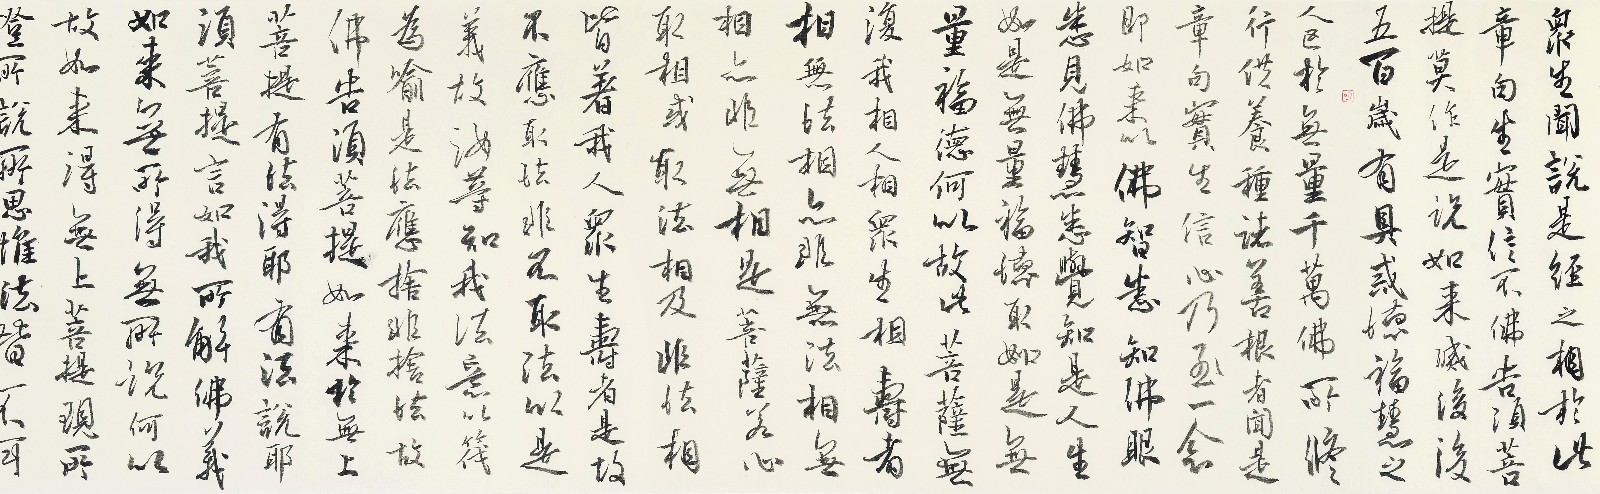 眾生聞說是經之相於此
章句生實信不佛告須菩
提莫作是說如來滅後後
五百歲有具戒德福慧之
人已於無量千萬佛所修
行供養種諸善根者聞是
章句實生信心乃至一念
即如來以佛智悉知佛眼
悉見佛慧悉覺知是人生
如是無量福德取如是無
量福德何以故此菩薩無
復我相人相眾生相壽者
相無法相亦非無法相無
相亦非無相是菩薩若心
取相或取法相及非法相
皆著我人眾生壽者是故
不應取法非不取法以是
義故汝等知我法意以筏
為喻是法應捨非捨法故
佛告須菩提如來於無上
菩提有法得耶有法說耶
須菩提言如我所解佛義
如來無所得無所說何以
故如來得無上菩提現所
登所說所思惟法皆不可